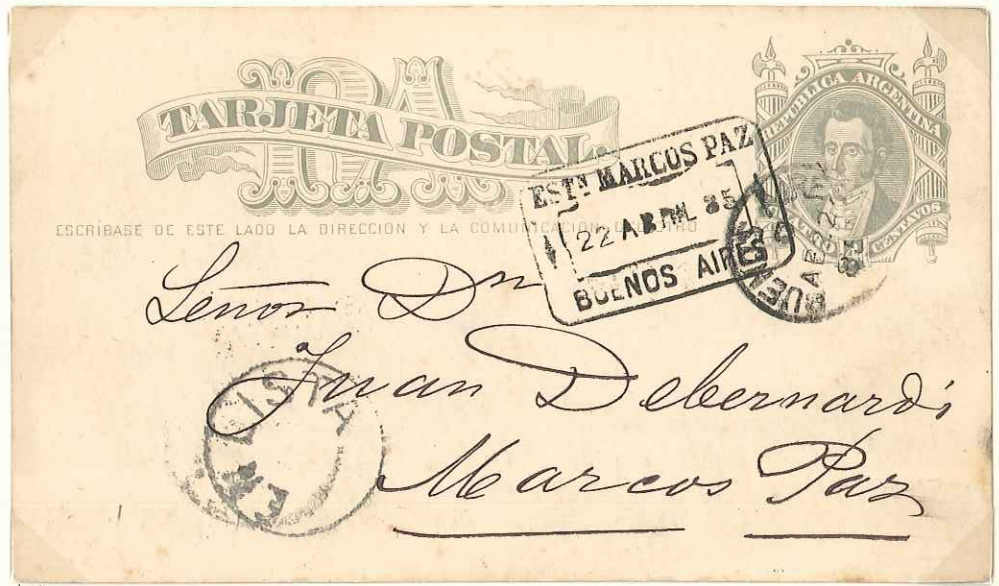 RA
TARJETA POSTAL.
REPUBLICA ARGENTINA
CUATRO CENTAVOS
ESCRÍBASE DE ESTE LADO LA DIRECCION Y LA COMUNICACION
ESTN MARCOS PAZ
22 ABRIL 85
BUENOS AIRES
BUEN
Señor Dn
Juan Debernardi
Marcos Paz
EN LISTA